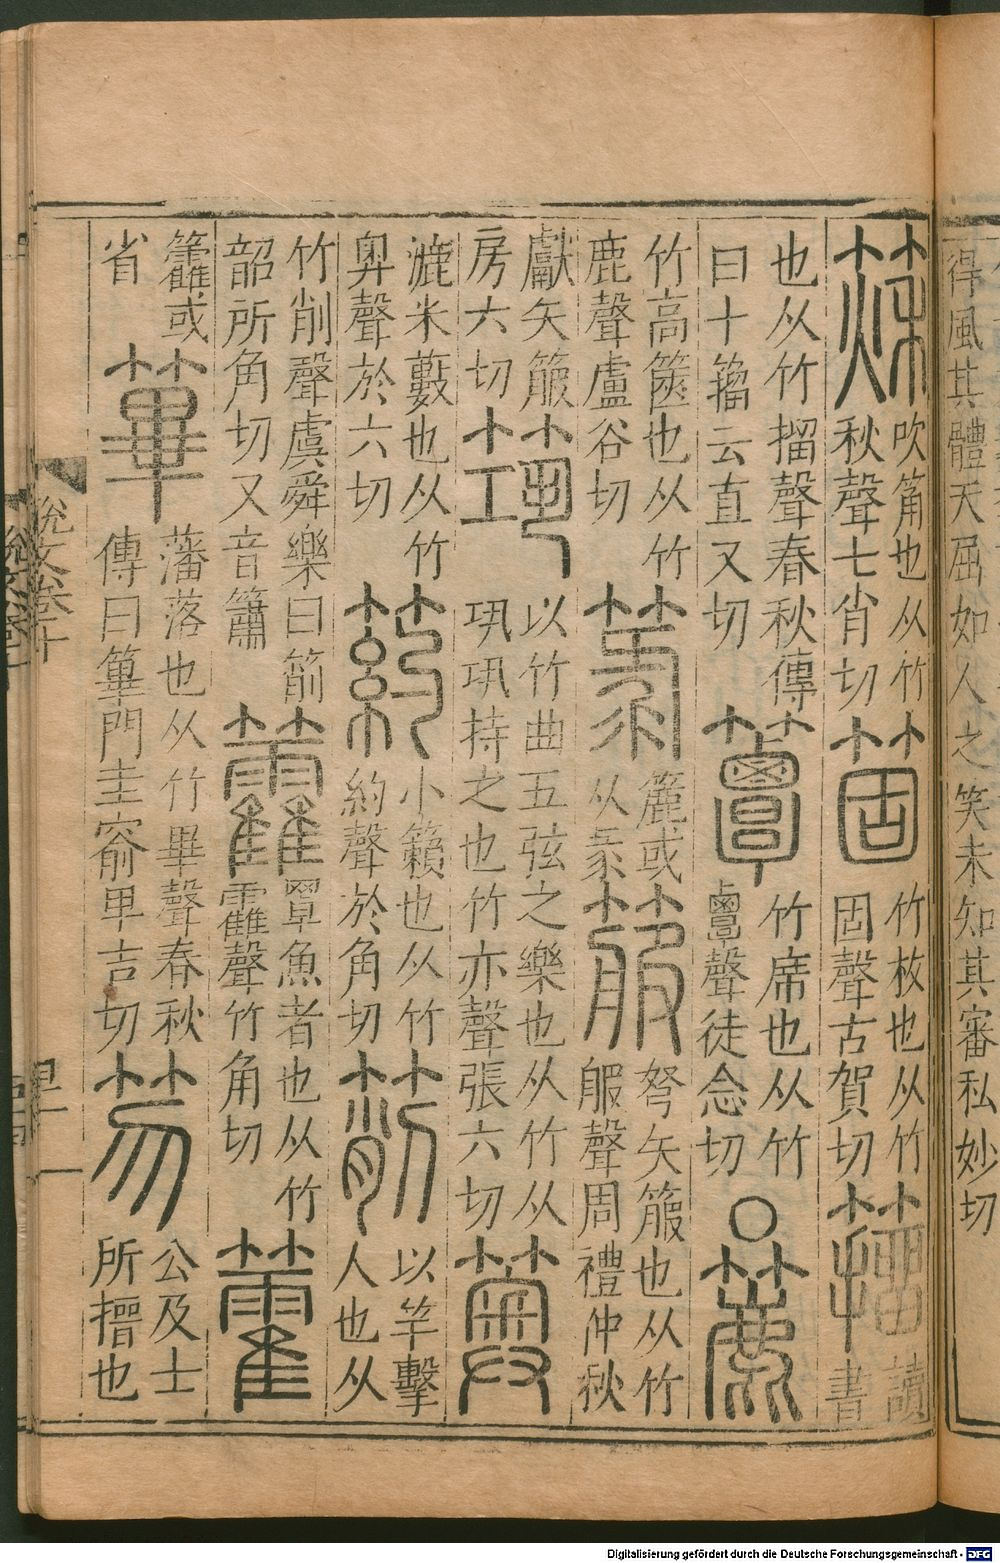 得風其體夭屈如人之笑未知其審私妙切
篍
吹筩也从竹
秋聲七肖切
箇
竹枚也从竹
固聲古賀切
籀
讀
書
也从竹㩅聲春秋傳
曰卜籀云直又切
簟
竹席也从竹
覃聲徒念切
○
簏
竹高篋也从竹
鹿聲盧谷切
箓
簏或
从彔
箙
弩矢箙也从竹
服聲周禮仲秋
獻矢箙
房六切
筑
以竹曲五弦之樂也从竹从
巩巩持之也竹亦聲張六切
䉛
漉米籔也从竹
奥聲於六切
箹
小籟也从竹
約聲於角切
箾
以竿擊
人也从
竹削聲虞舜樂曰箾
韶所角切又音簫
籱
罩魚者也从竹
靃聲竹角切
籗
籱或
省
篳
藩落也从竹畢聲春秋
傳曰篳門圭窬卑吉切
笏
公及士
所搢也
說文卷十
Digitalisierung gefördert durch die Deutsche Forschungsgemeinschaft - DFG